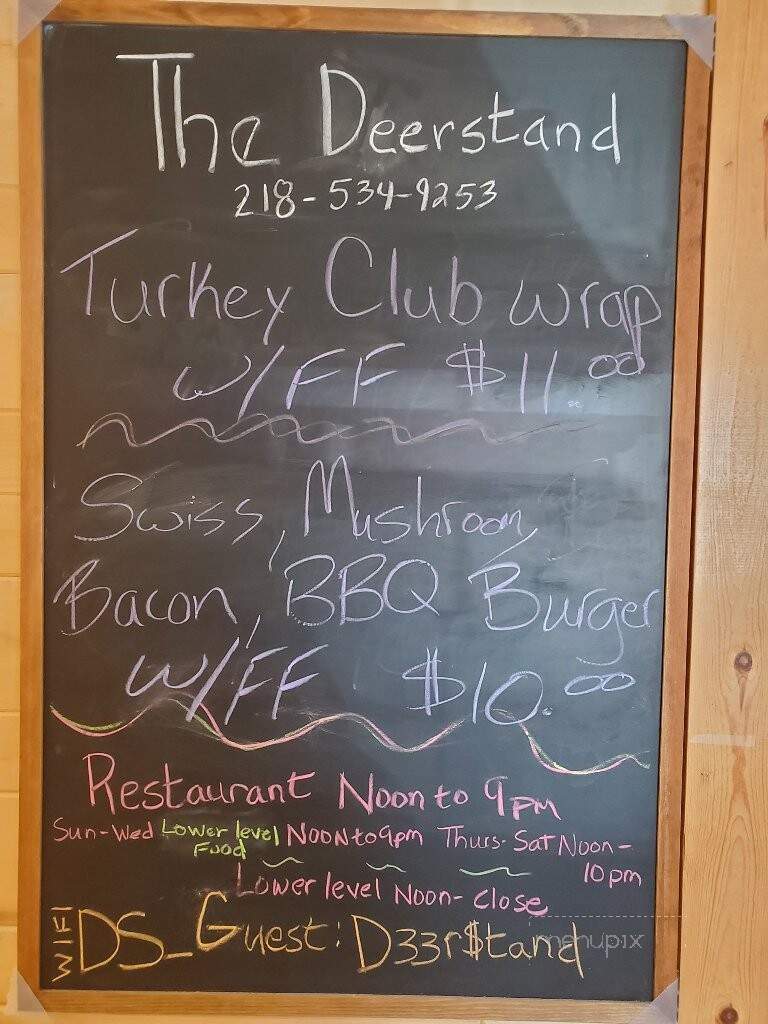 The Deerstand
218-534-9253
Turkey Club wrap
w/FF $11.00
Swiss, Mushroom,
Bacon, BBQ Burger
w/FF $10.00
Restaurant Noon to 9pm
Sun-Wed Lower level Food Noon to 9pm Thurs-Sat Noon-
10pm
Lower level Noon-Close
WIFI DS_Guest: D33r$tand
menupix